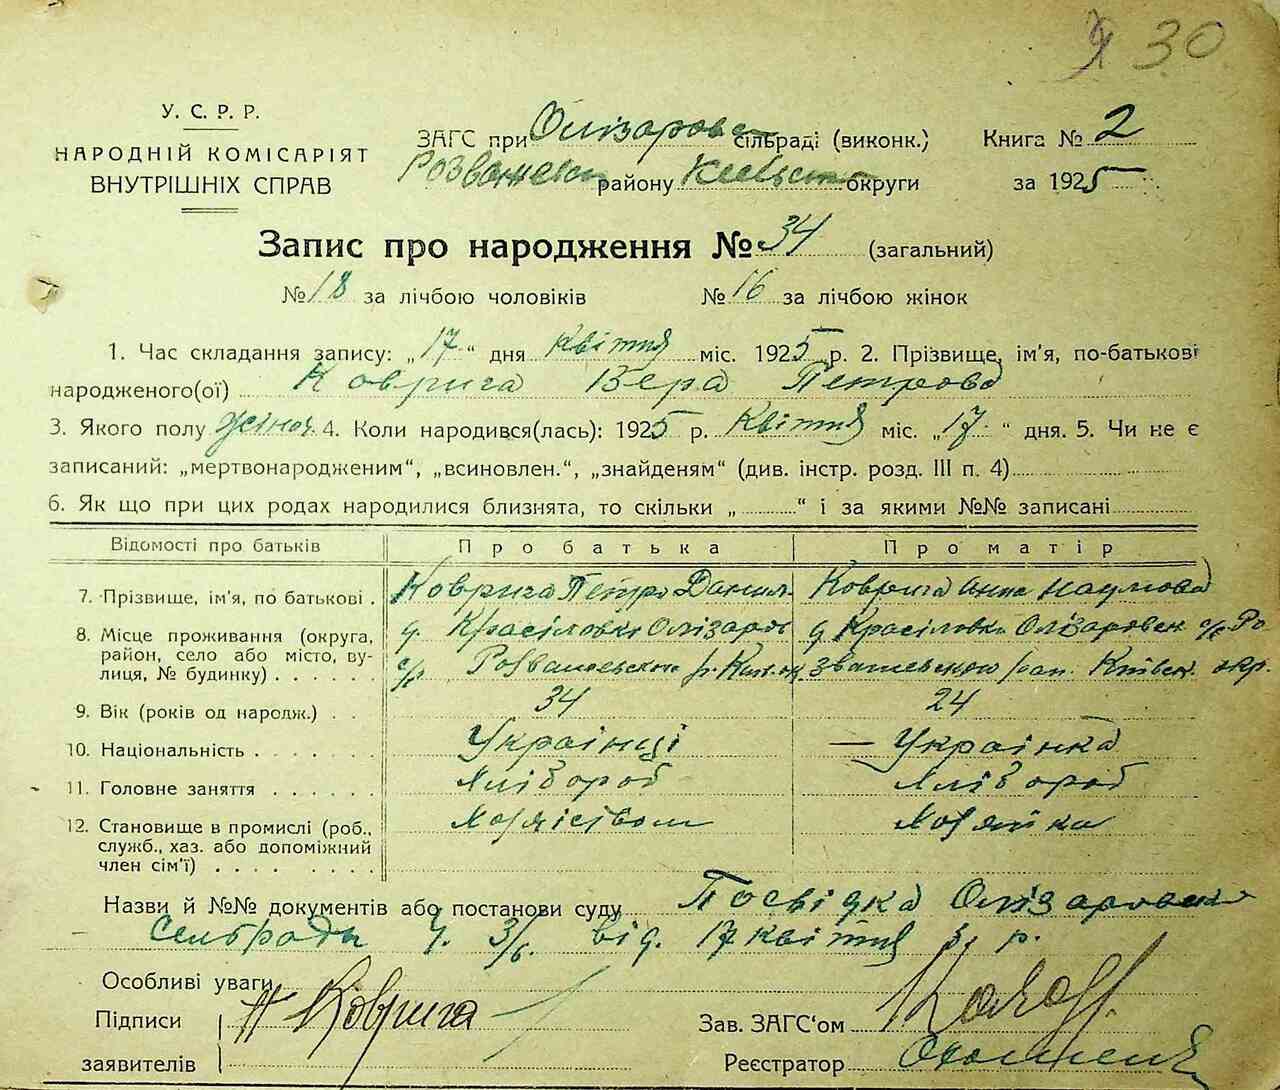 30
У. С. Р. Р.
НАРОДНІЙ КОМІСАРІЯТ
ВНУТРІШНІХ СПРАВ
ЗАГС при Олізаровск сільраді (виконк.)
Розважевск району Київськ округи
Книга № 2
за 1925
Запис про народження № 34 (загальний)
№ 18 за лічбою чоловіків № 16 за лічбою жінок
1. Час складання запису: „17“ дня Квітня міс. 1925 р. 2. Прізвище, ім'я, по-батькові
народженого(ої) Коврига Вера Петрова
3. Якого полу жіноч. 4. Коли народився(лась): 1925 р. Квітня міс. „17“ дня. 5. Чи не є
записаний: „мертвонародженим“, „всиновлен.“, „знайденям“ (див. інстр. розд. III п. 4)
6. Як що при цих родах народилися близнята, то скільки „ “ і за якими №№ записані
Відомості про батьків Про батька Про матір
7. Прізвище, ім'я, по батькові. Коврига Петро Данил. Коврига Анна Наумова
8. Місце проживання (округа, район, село або місто, вулиця, № будинку)
д. Красіловки Олізаров с/р Розважевскою р. Київ. ок.
д. Красіловки Олізаровск с/р Розважевскою рай. Київск. окр.
9. Вік (років од народж.) 34 24
10. Національність Українці — Українка
11. Головне заняття Хлібороб Хлібороб
12. Становище в промислі (роб., служб., хаз. або допоміжний член сім'ї) Хазяйка
Назви й №№ документів або постанови суду Посвідка Олізаровскої
Сельради Ч. 3/6. від. 17 квітня р.
Особливі уваги
Підписи Коврига
заявителів
Зав. ЗАГС'ом
Реєстратор